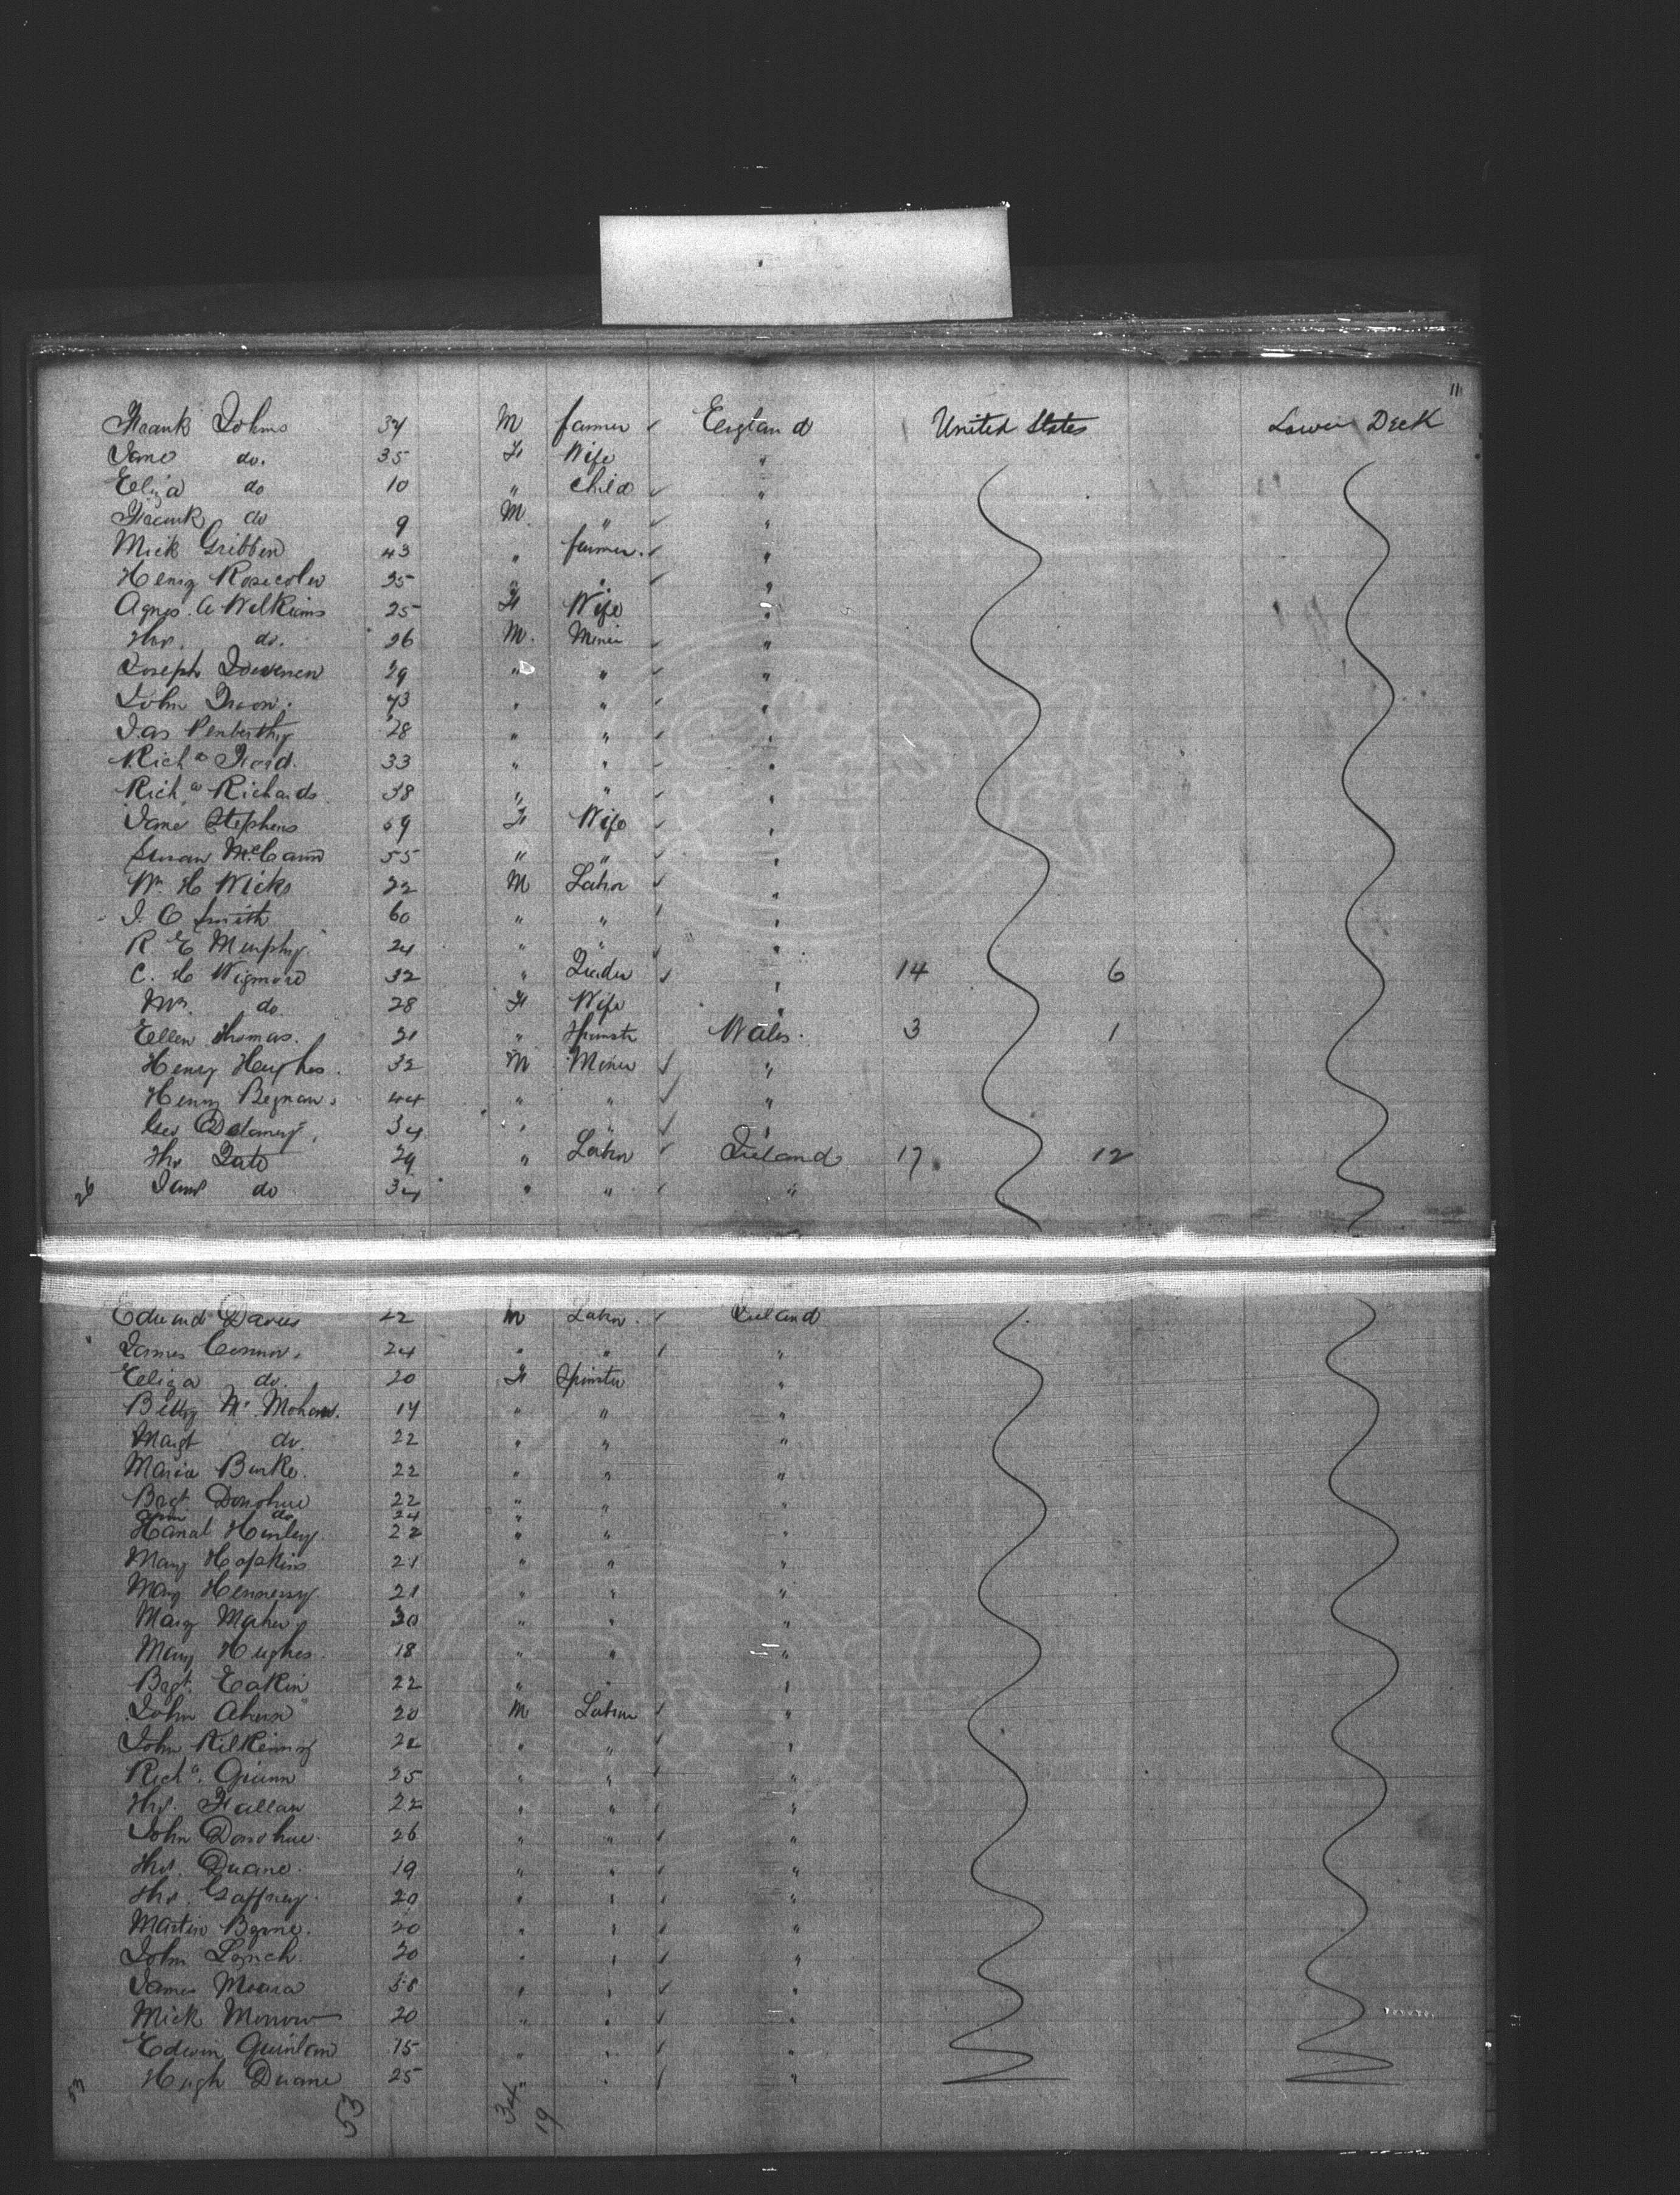 11
Frank Johns 34 M farmer ✓ England United States Lower Deck
Jane do. 35 F Wife "
Eliza do 10 " Child ✓ "
Frank do 9 M. " ✓ "
Mick Gribben 43 " farmer. ✓ "
Henry Rosecolw 35 " " ✓ "
Agnes. A Wilkins 25 F Wife "
Thos. do. 26 M. Miner ✓ "
Joseph 29 " " ✓ "
John 43 " " ✓ "
Jas Penberthy 28 " " ✓ "
Richd 33 " " ✓ "
Richd Richards 38 " " ✓ "
Jane Stephens 69 F Wife ✓ "
Susan McCann 55 " " ✓ "
Wm H Wicks 22 M Labor ✓ "
J. O Smith 60 " " "
R E Murphy 24 " " "
C. H Wigmore 32 " ✓ " 14 6
Mrs. do. 28 F Wife "
Ellen Thomas. 21 " Spinstr Wales. 3 1
Henry Hughes. 32 M Miner ✓ "
Henry 44 " " ✓ "
Geo Delamey 34 " " ✓ "
Thos Tate 29 " Labor ✓ Ireland 17 12
26 Jane do 34 " " ✓ "
Edward Davies 22 M Labor. ✓ Ireland
James Connor. 24 " " "
Eliza do. 20 F Spinster "
Betty Mc Mohan. 14 " " "
Margt do. 22 " " "
Maria Burke. 22 " " "
Brgt. Donohue 22 " " "
Ann do 24 "
Hanah Henley 22 " " "
Mary Hopkins 21 " " "
Mary Hennessy 21 " " "
Mary Maher 30 " " "
Mary Hughes. 18 " " "
Bagt. Eakin 22 " " "
John Ahern 20 M Labour ✓ "
John Kilkenny 22 " " "
Richd. Quinn 25 " " "
Thos. Fallan 22 " " "
John Donohue. 26 " " ✓ "
Thos. Duane. 19 " " ✓ "
Thos. Gaffney. 20 " " ✓ "
Martin Byrne. 20 " " ✓ "
John Lynch. 20 " " ✓ "
James Meara 58 " " ✓ "
Mick Morrow 20 " " ✓ "
Edwin Quinlan 15 " " "
53 Hugh Duane 25 " " "
53 34 19